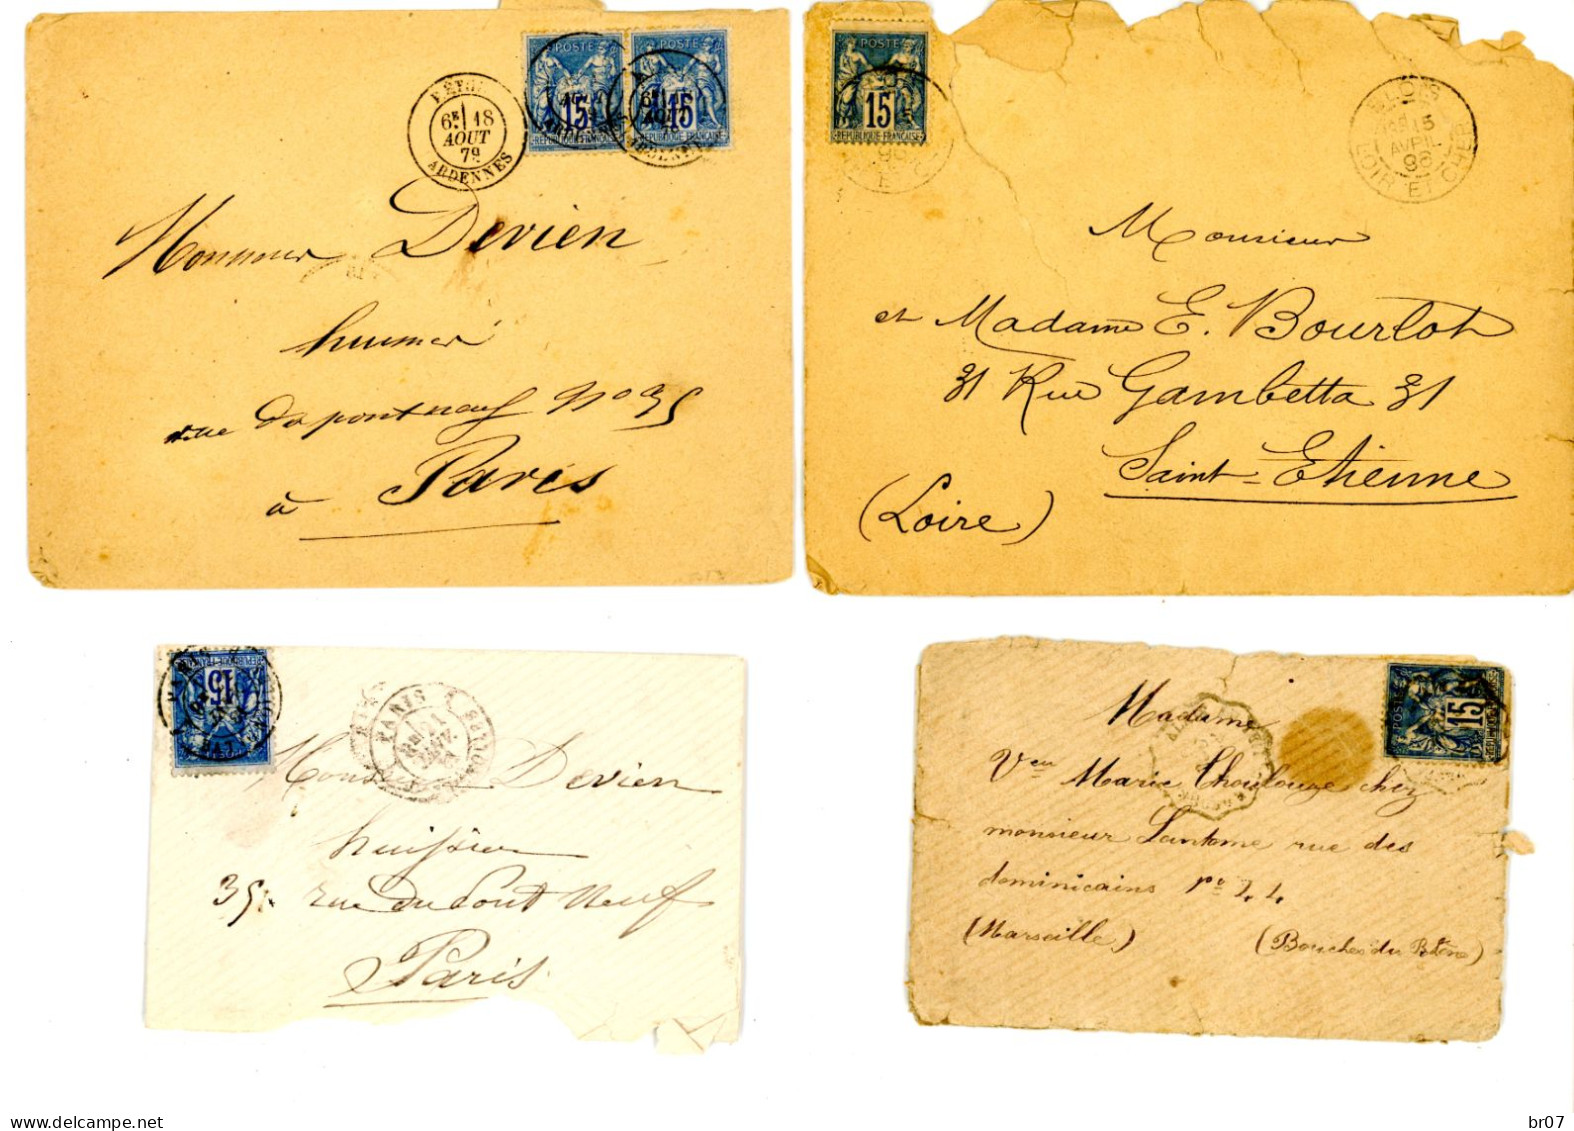 RÉTH
6E 18
AOUT
79
ARDENNES
POSTE
15
REPUBLIQUE FRANÇAISE
POSTE
15
REPUBLIQUE FRANÇAISE
Monsieur Devien
huissier
rue du pont neuf No 35
à Paris
POSTE
15
REPUBLIQUE FRANÇAISE
BLOIS
15
AVRIL
86
LOIR ET CHER
Monsieur
et Madame E. Bourlot
31 Rue Gambetta 31
Saint-Etienne
(Loire)
15
PARIS
Monsieur Devien
huissier
35, rue du Pont Neuf
Paris
POSTE
15
Madame
Veu Marie Thoulouze chez
monsieur Lantome rue des
dominicains
(Marseille) (Bouches du Rhône)
delcampe.net
br07